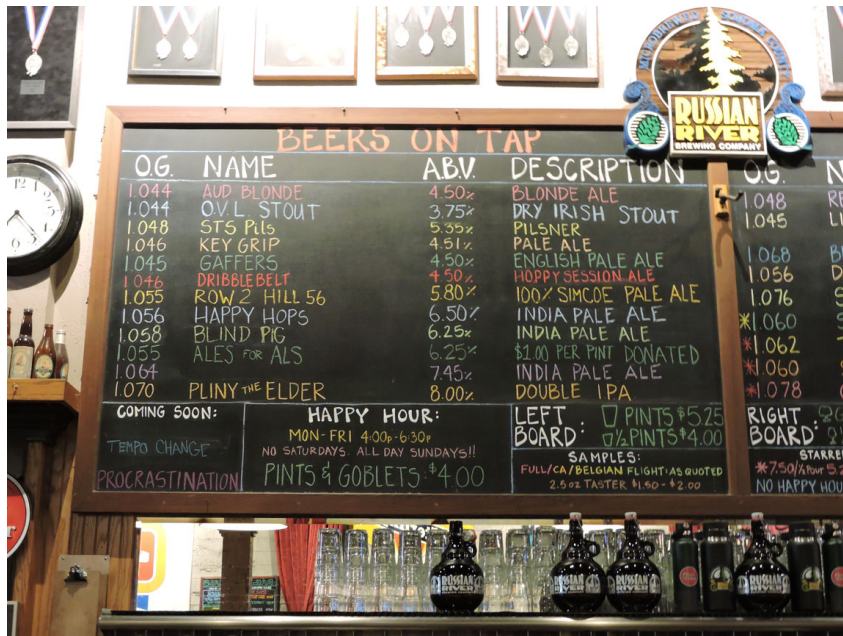 MICROBREWED SONOMA COUNTY
RUSSIAN
RIVER
BREWING COMPANY
BEERS ON TAP
O.G. NAME A.B.V. DESCRIPTION
1.044 AUD BLONDE 4.50% BLONDE ALE
1.044 O.V.L. STOUT 3.75% DRY IRISH STOUT
1.048 STS PiLs 5.35% PILSNER
1.046 KEY GRIP 4.51% PALE ALE
1.045 GAFFERS 4.50% ENGLISH PALE ALE
1.046 DRIBBLEBELT 4.50% HOPPY SESSION ALE
1.055 ROW 2 HILL 56 5.80% 100% SIMCOE PALE ALE
1.056 HAPPY HOPS 6.50% INDIA PALE ALE
1.058 BLIND PIG 6.25% INDIA PALE ALE
1.055 ALES FOR ALS 6.25% $1.00 PER PINT DONATED
1.064 7.45% INDIA PALE ALE
1.070 PLINY THE ELDER 8.00% DOUBLE IPA
COMING SOON:
TEMPO CHANGE
PROCRASTINATION
HAPPY HOUR:
MON-FRI 4:00P-6:30P
NO SATURDAYS. ALL DAY SUNDAYS!!
PINTS & GOBLETS: $4.00
LEFT BOARD:
PINTS $5.25
½ PINTS $4.00
SAMPLES:
FULL/CA/BELGIAN FLIGHT: AS QUOTED
2.5oz TASTER $1.50-$2.00
O.G. N
1.048 RE
1.045 LI
1.068 B
1.056 D
1.076 S
*1.060 S
*1.062
*1.060
*1.078
RIGHT
BOARD:
STARRE
*7.50/½ Pour 5.2
NO HAPPY HOU
RUSSIAN
RIVER
RUSSIAN
RIVER
RUSSIAN
RIVER
RUSSIAN
RIVER